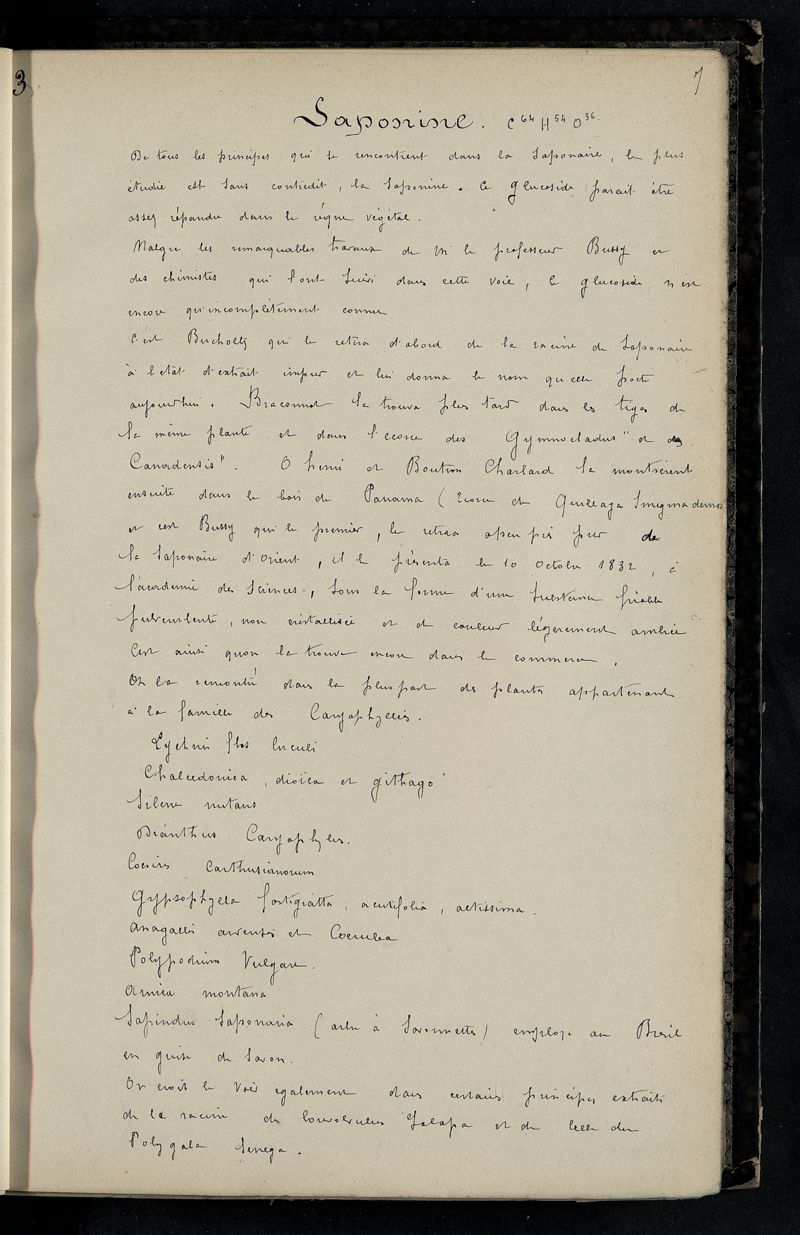 3
7
Saponine. C⁶⁴ H⁵⁴ O³⁶.
De tous les principes qui se rencontrent dans la Saponaire, le plus
étudié est sans contredit, la Saponine. Ce glucoside parait être
assez répandu dans le règne végétal.
Malgré les remarquables travaux de M le professeur Bussy et
des chimistes qui l'ont suivi dans cette voie, le glucoside n'est
encore qu'incomplètement connu
C'est Bucholtz qui la retira d'abord de la racine de Saponaire
à l'état d'extrait impur et lui donna le nom qu'elle porte
aujourd'hui. Braconnot la trouva plus tard dans les tiges de
la même plante et dans l'écorce des Gymnocladus" et des
Canadensis". O henri et Boutron Charlard la montrèrent
ensuite dans le bois de Panama (Ecorce de Quillaya Smegmadermos
et c'est Bussy qui le premier, la retira apeu près pur de
la Saponaire d'Orient, et la présenta le 10 Octobre 1832, à
l'académie des Sciences, sous la forme d'une substance friable
pulvérulente, non cristallisée et de couleur légèrement ambrée
C'est ainsi quon la trouve encore dans le commerce.
On la rencontré dans la pluspart des plantes appartenant
à la famille des Caryophyllées.
Lychnis flos cuculi
Chalcedonica, dioïca et githago
Silene nutans
Dianthus Caryophyllus.
Coesius Carthusianorum
Gypsophylla fastigiatta, acutifolia, altissima.
Anagallis arvensis et Coerulea
Polypodium Vulgare.
Arnica montana
Sapindus Saponaria (arbre à Savonnettes) employé au Bresil
en guise de Savon.
On croit le voir egalement dans certains principes extraits
de la racine des Convolvulus Jalapa et de celle du
Polygala Senega.